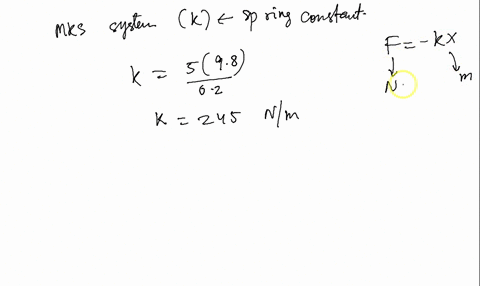 MKS system (k) ← spring constant.
k = 5(9.8) / 0.2
K = 245 N/m
F = -kx
↓ ↘
N m